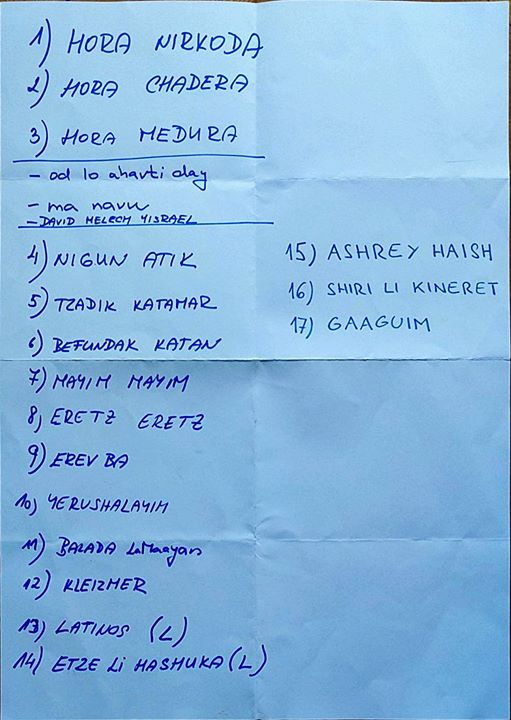 1) HORA NIRKODA
2) HORA CHADERA
3) HORA MEDURA
- od lo ahavti day
- ma navu
- DAVID MELECH YISRAEL
4) NIGUN ATIK
5) TZADIK KATAMAR
6) BEFUNDAK KATAN
7) MAYIM MAYIM
8) ERETZ ERETZ
9) EREV BA
10) YERUSHALAYIM
11) BALADA LaMaayan
12) KLEIZMER
13) LATINOS (L)
14) ETZE LI HASHUKA (L)
15) ASHREY HAISH
16) SHIRI LI KINERET
17) GAAGUIM